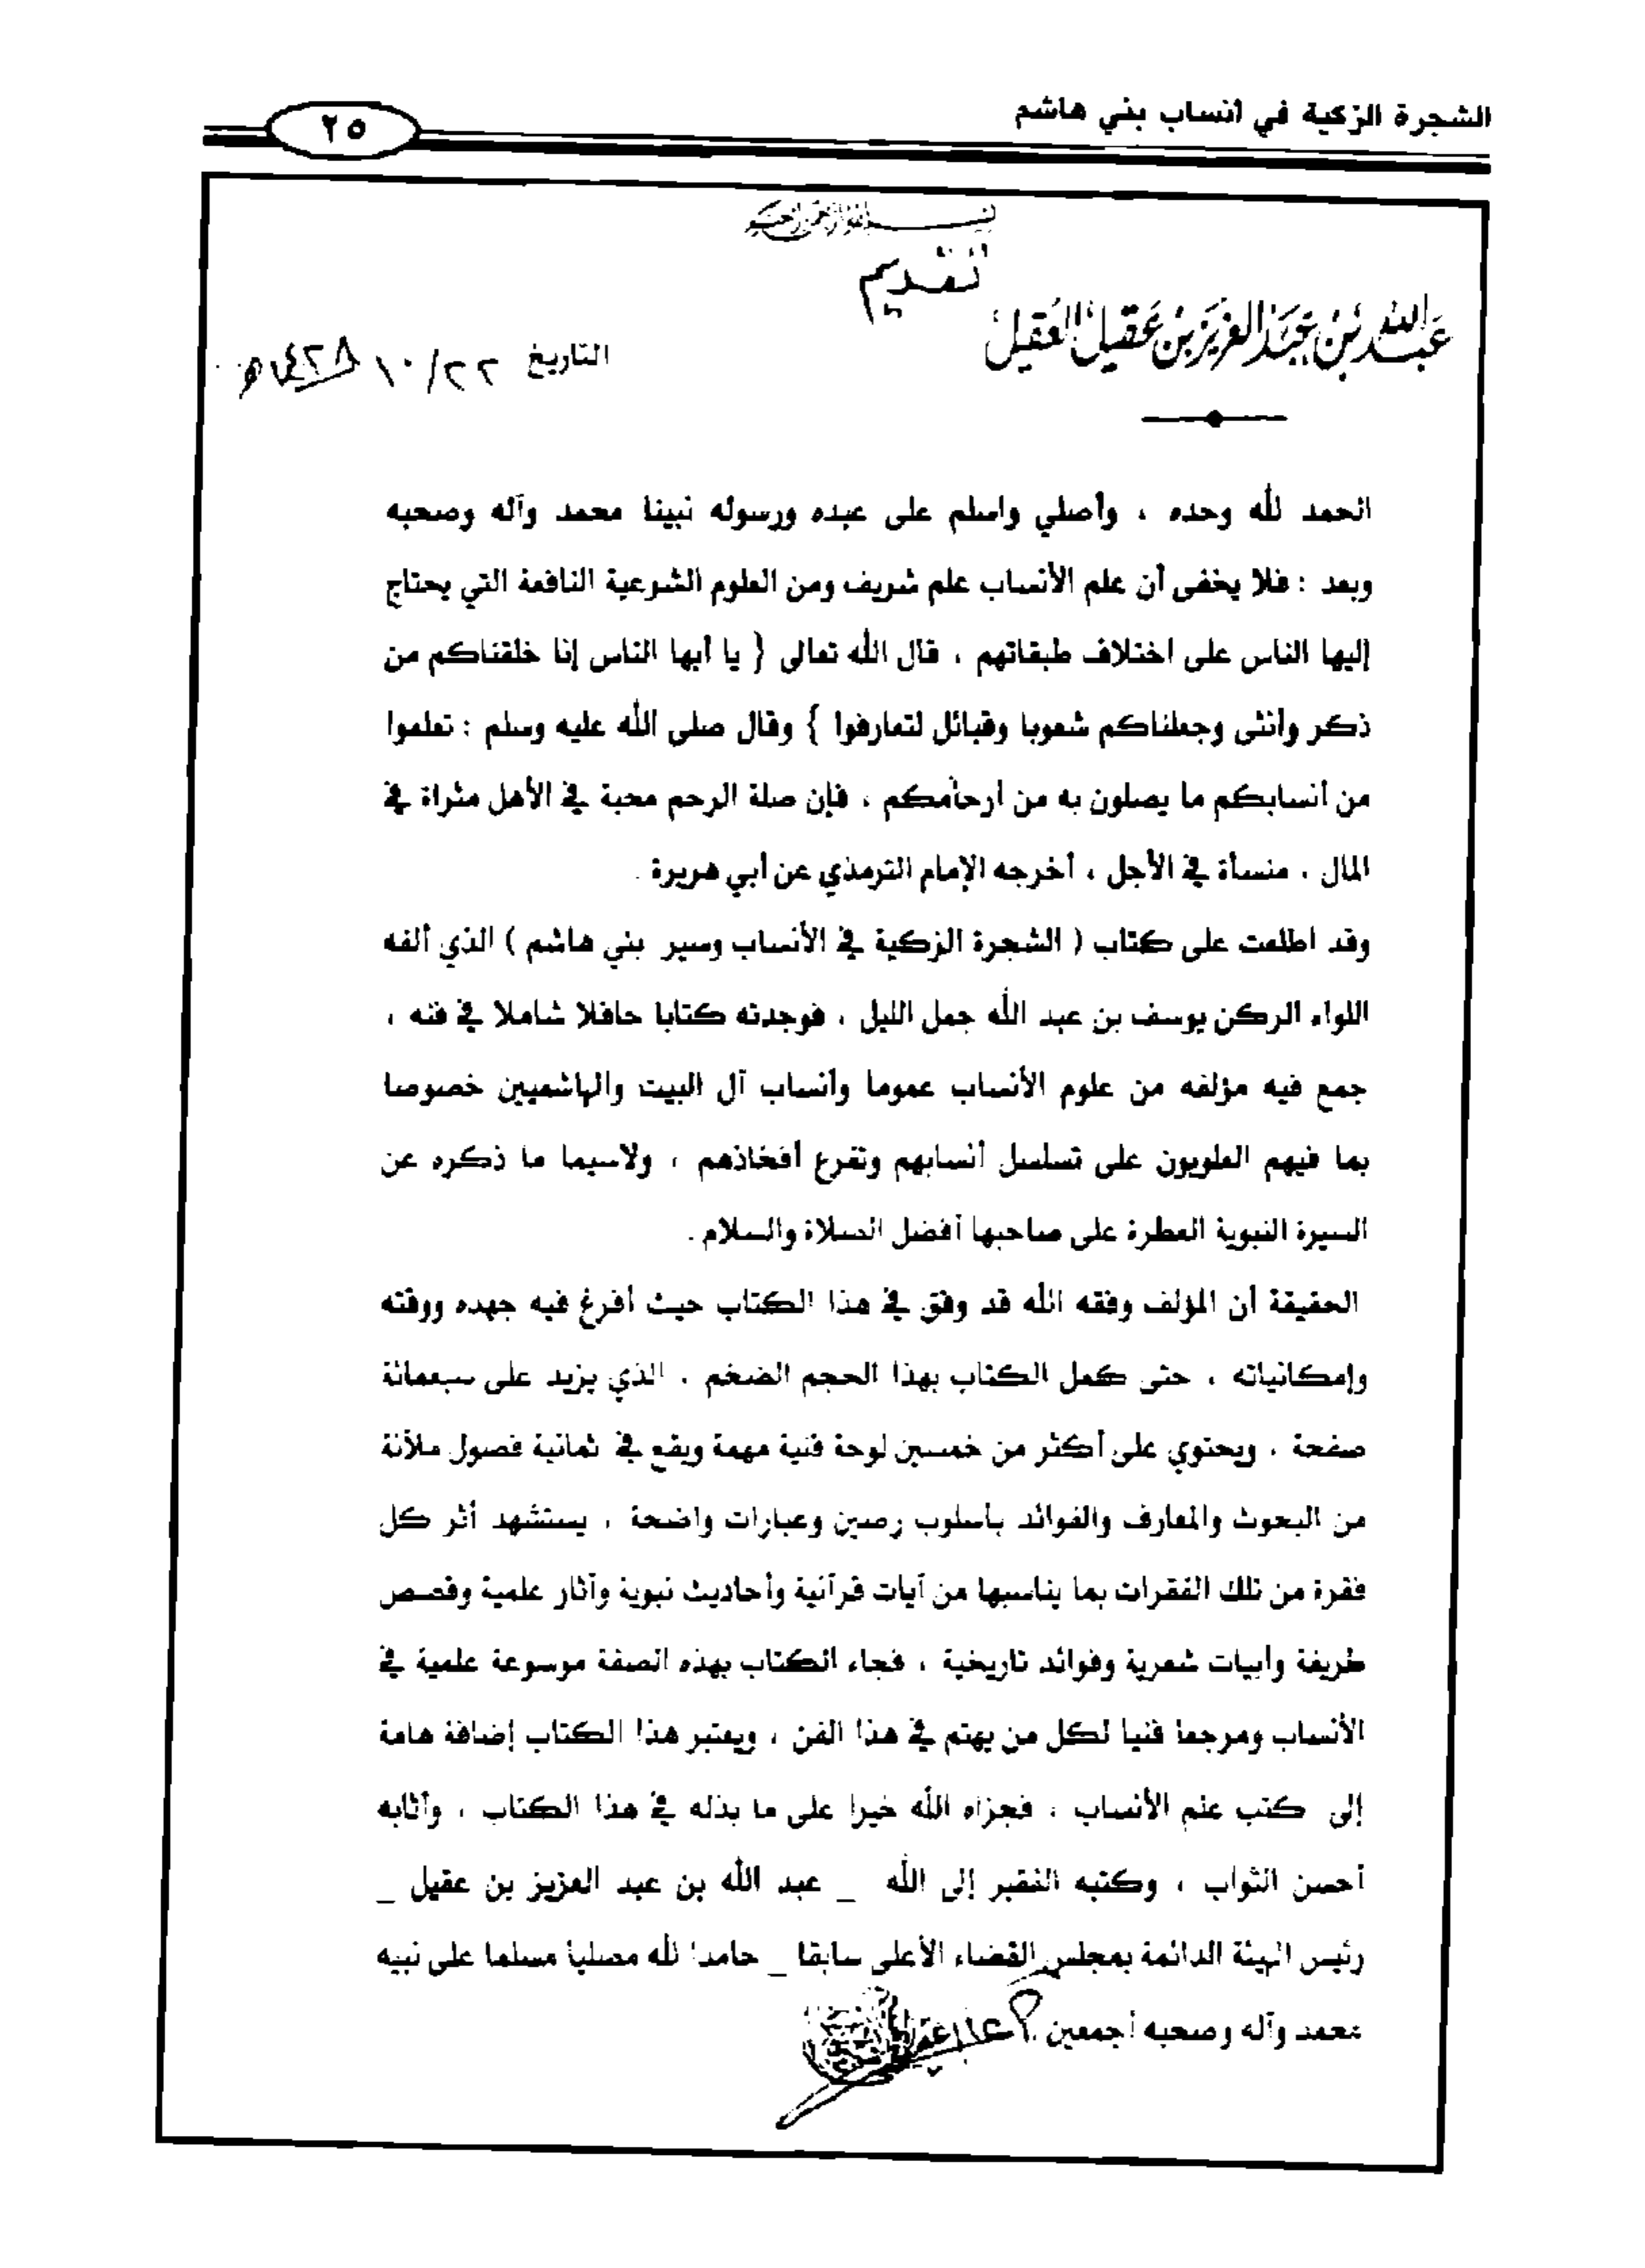 الشجرة الزكية في أنساب بني هاشم
٢٥
بسم الله الرحمن الرحيم
تقديم
عبد الله بن عبد العزيز بن عقيل العقيل
التاريخ ٢٢/١٠/١٤٢٨هـ
الحمد لله وحده ، وأصلي واسلم على عبده ورسوله نبينا محمد وآله وصحبه
وبعد : فلا يخفى أن علم الأنساب علم شريف ومن العلوم الشرعية النافعة التي يحتاج
إليها الناس على اختلاف طبقاتهم ، قال الله تعالى { يا أيها الناس إنا خلقناكم من
ذكر وأنثى وجعلناكم شعوبا وقبائل لتعارفوا } وقال صلى الله عليه وسلم : تعلموا
من أنسابكم ما يصلون به من أرحامكم ، فإن صلة الرحم محبة في الأهل مثراة في
المال ، منسأة في الأجل ، أخرجه الإمام الترمذي عن أبي هريرة .
وقد اطلعت على كتاب ( الشجرة الزكية في الأنساب وسير بني هاشم ) الذي ألفه
اللواء الركن يوسف بن عبد الله جمل الليل ، فوجدته كتابا حافلا شاملا في فنه ،
جمع فيه مؤلفه من علوم الأنساب عموما وأنساب آل البيت والهاشميين خصوصا
بما فيهم العلويون على تسلسل أنسابهم وتفرع أفخاذهم ، ولاسيما ما ذكره عن
السيرة النبوية العطرة على صاحبها أفضل الصلاة والسلام .
الحقيقة أن المؤلف وفقه الله قد وفق في هذا الكتاب حيث أفرغ فيه جهده ووقته
وإمكانياته ، حتى كمل الكتاب بهذا الحجم الضخم ، الذي يزيد على سبعمائة
صفحة ، ويحتوي على أكثر من خمسين لوحة فنية مهمة ويقع في ثمانية فصول ملأنة
من البحوث والمعارف والفوائد بأسلوب رصين وعبارات واضحة ، يستشهد أثر كل
فقرة من تلك الفقرات بما يناسبها من آيات قرآنية وأحاديث نبوية وآثار علمية وقصص
طريفة وأبيات شعرية وفوائد تاريخية ، فجاء الكتاب بهذه الصفة موسوعة علمية في
الأنساب ومرجعا فنيا لكل من يهتم في هذا الفن ، ويعتبر هذا الكتاب إضافة هامة
إلى كتب علم الأنساب ، فجزاه الله خيرا على ما بذله في هذا الكتاب ، وأثابه
أحسن الثواب ، وكتبه الفقير إلى الله _ عبد الله بن عبد العزيز بن عقيل _
رئيس الهيئة الدائمة بمجلس القضاء الأعلى سابقا _ حامدا لله مصليا مسلما على نبيه
محمد وآله وصحبه أجمعين .